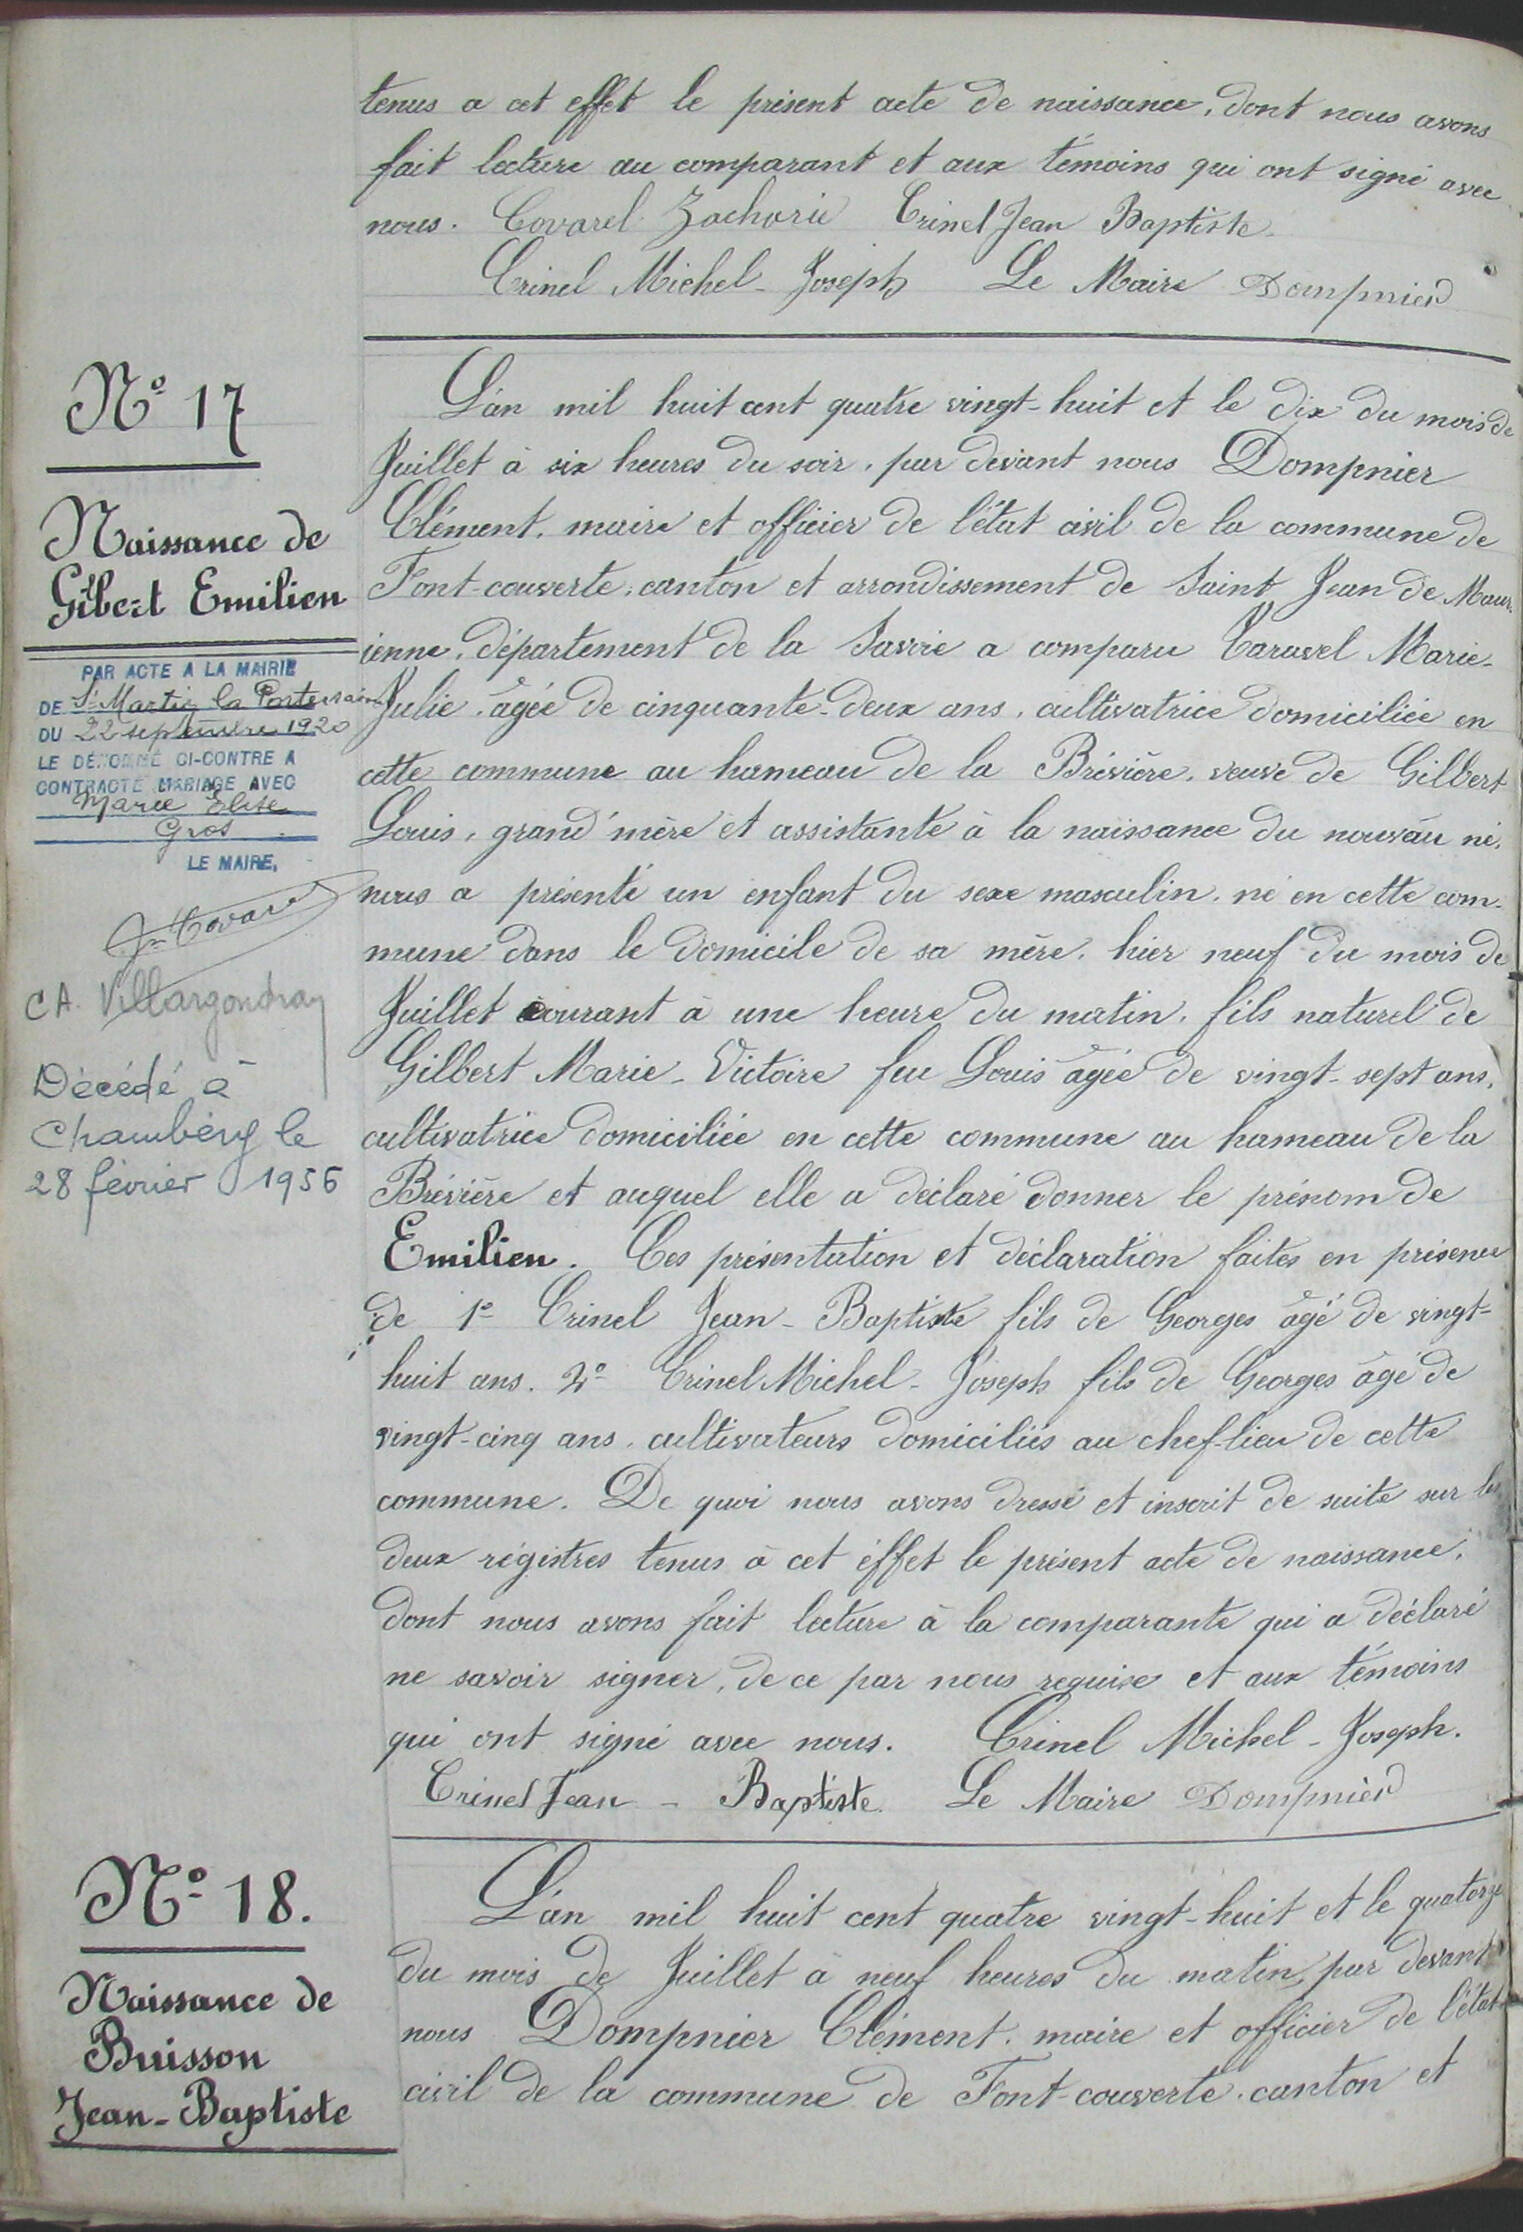 tenus a cet effet le présent acte de naissance, dont nous avons
fait lecture au comparant et aux témoins qui ont signé avec
nous. Covarel Zacharie Trinel Jean Baptiste
Trinel Michel-Joseph Le Maire Dompnier
N° 17
Naissance de
Gilbert Emilien
PAR ACTE A LA MAIRIE
DE St Martin la Porte
DU 22 septembre 1920
LE DÉNOMMÉ CI-CONTRE A
CONTRACTÉ MARIAGE AVEC
Marie Elise
Gros
LE MAIRE,
CA. Villargondran
Décédé à
Chambéry le
28 février 1956
L'an mil huit cent quatre vingt-huit et le dix du mois de
Juillet à six heures du soir, par devant nous Dompnier
Clément, maire et officier de l'état civil de la commune de
Font-couverte, canton et arrondissement de Saint Jean de Maur-
ienne, département de la Savoie a comparu Taravel Marie-
Julie, âgée de cinquante-deux ans, cultivatrice domiciliée en
cette commune au hameau de la Brévière, veuve de Gilbert
Louis, grand'mère et assistante à la naissance du nouvau né,
nous a présenté un enfant du sexe masculin, né en cette com-
mune dans le domicile de sa mère, hier neuf du mois de
Juillet courant à une heure du matin, fils naturel de
Gilbert Marie-Victoire feu Louis âgée de vingt-sept ans,
cultivatrice domiciliée en cette commune au hameau de la
Brévière et auquel elle a déclaré donner le prénom de
Emilien. Ces présentation et déclaration faites en présence
de 1° Trinel Jean-Baptiste fils de Georges âgé de vingt-
huit ans. 2° Trinel Michel-Joseph fils de Georges âgé de
vingt-cinq ans, cultivateurs domiciliés au chef-lieu de cette
commune. De quoi nous avons dressé et inscrit de suite sur les
deux régistres tenus à cet éffet le présent acte de naissance,
dont nous avons fait lecture à la comparante qui a déclaré
ne savoir signer, de ce par nous requise et aux témoins
qui ont signé avec nous. Trinel Michel-Joseph.
Trinel Jean-Baptiste. Le Maire Dompnier
N° 18.
Naissance de
Buisson
Jean-Baptiste
L'an mil huit cent quatre vingt-huit et le quatorze
du mois de Juillet à neuf heures du matin, par devant
nous Dompnier Clément, maire et officier de l'état
civil de la commune de Font-couverte, canton et